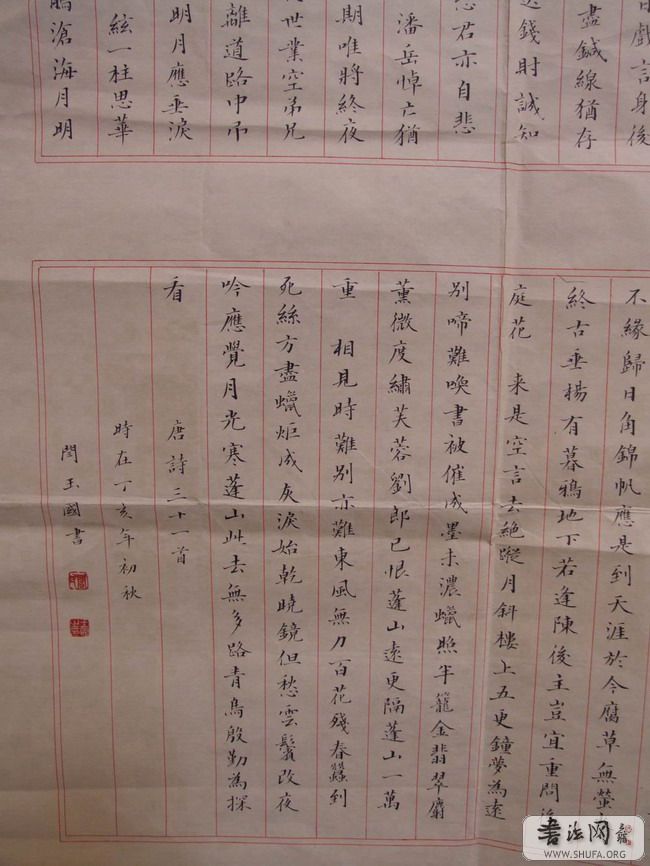 日戲言身後
盡鍼線猶存
送錢財誠知
悲君亦自悲
潘岳悼亡猶
期唯將終夜
世業空弟兄
離道路中弔
明月應垂淚
絃一柱思華
滄海月明
不緣歸日角錦帆應是到天涯於今腐草無螢
終古垂楊有暮鴉地下若逢陳後主豈宜重問後
庭花 来是空言去絶蹤月斜樓上五更鐘夢為遠
別啼難喚書被催成墨未濃蠟照半籠金翡翠麝
薰微度繡芙蓉劉郎已恨蓬山遠更隔蓬山一萬
重 相見時難別亦難東風無力百花殘春蠶到
死絲方盡蠟炬成灰淚始乾曉鏡但愁雲鬢改夜
吟應覺月光寒蓬山此去無多路青鳥殷勤為探
看
唐詩三十一首
時在丁亥年初秋
閆玉國書
書法网
WWW.SHUFA.ORG